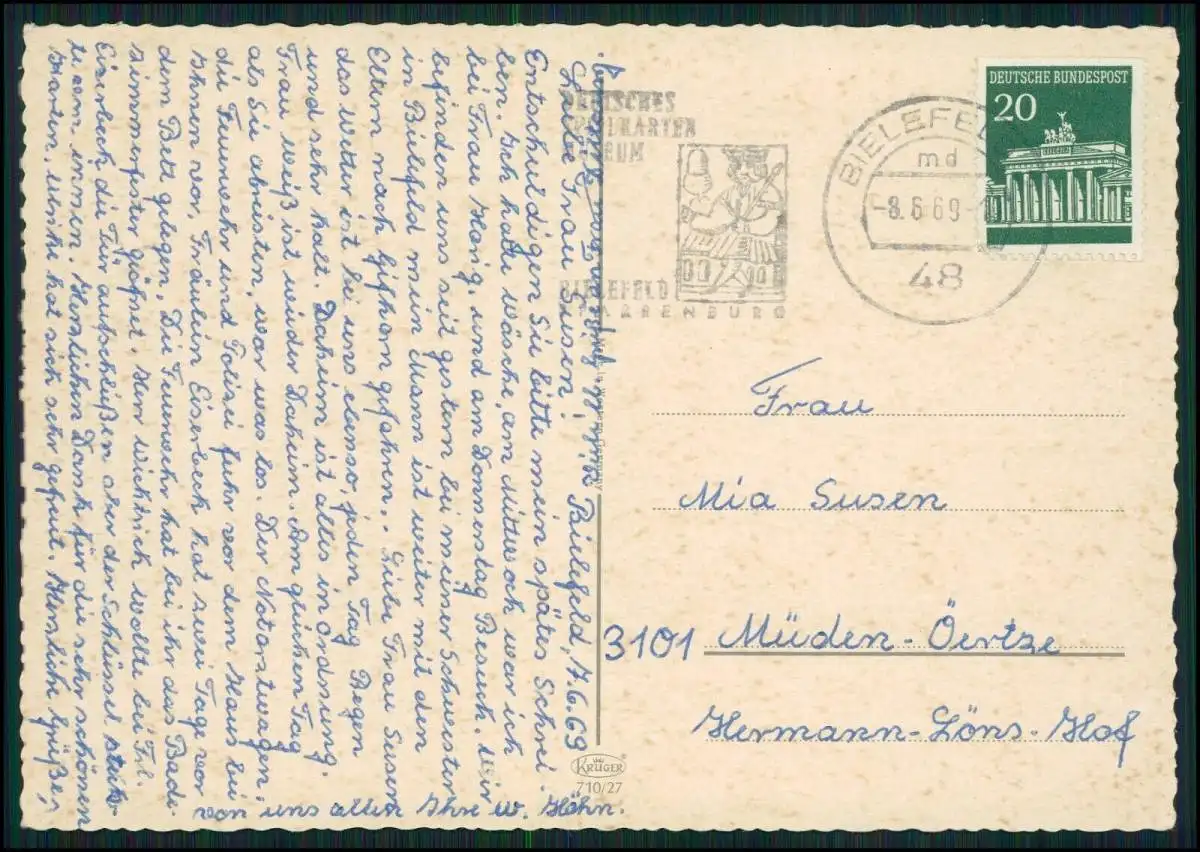 DEUTSCHES
SPIELKARTEN
MUSEUM
BIELEFELD
SPARRENBURG
BIELEFELD
md
-8.6.69-
48
DEUTSCHE BUNDESPOST
20
Frau
Mia Susen
3101 Müden-Örtze
Hermann-Löns-Hof
KRÜGER
710/27
Bielefeld, 7.6.69
Liebe Frau Susen!
Entschuldigen Sie bitte mein spätes Schrei-
ben. Ich hatte Wäsche, am Mittwoch war ich
bei Frau Honig, und am Donnerstag Besuch. Wir
befinden uns seit gestern bei meiner Schwester
in Bielefeld mein Mann ist weiter mit den
Eltern nach Gifhorn gefahren. Liebe Frau Susen
das Wetter ist bei uns ebenso, jeden Tag Regen
und sehr kalt. Daheim ist alles in Ordnung.
Frau Weiß ist wieder Daheim. Am gleichen Tag
als Sie abreisten, war was los. Der Notarztwagen,
die Feuerwehr und Polizei fuhr vor dem Haus bei
Ihnen vor, Fräulein Eiserbeck hat zwei Tage vor
dem Bett gelegen, Die Feuerwehr hat bei ihr das Bade-
zimmerfenster geöfnet. Herr Wichtrich wollte bei Frl.
Eiserbeck die Tür aufschließen aber der Schlüssel steck-
te von innen. Herzlichen Dank für die sehr schönen
Karten. Meike hat sich sehr gefreut. Herzliche Grüße,
von uns allen Ihre W. Höhn.